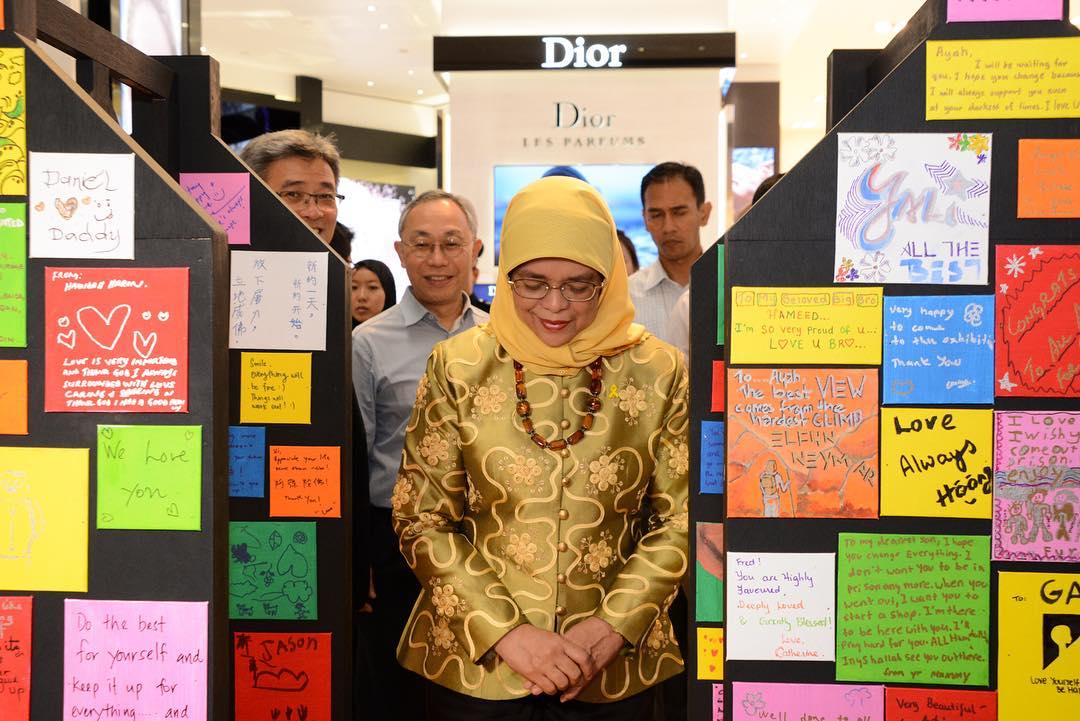 Dior
Dior
LES PARFUMS
Daniel
Daddy
always
FROM:
LOVE IS VERY IMPORTANT
AND THANK GOD I ALWAYS
SURROUNDED WITH LOVE
We Love
you
Do the best
for yourself and
keep it up for
everything.... and
新的一天。
新的开始
放下屠刀。
立地成佛。
Smile.
Everything will
be fine :)
Things will
work out! :)
Hi,
Thank you!
JASON
Ayah,
I will be waiting for
you, I hope you change because
I will always support you even
at your darkest of times. I love U
ALL THE
BEST
To My Beloved Big Bro
HAMEED...
I'm so very proud of u...
LOVE U BRO...
very happy
to come
to this exhibition
Thank You
To... Ayah
The best VIEW
comes from the
Hardest CLIMB
Love
Always
CONGRATS
I Love
I wish y
come out
prison
enjoy
Fred!
You are Highly
Favoured,
Deeply Loved
& Greatly Blessed!
Love,
Catherine.
To my dearest son, I hope
you change Everything. I
don't want you to be in
prison any more. When you
went out, I want you to
start a shop. I'm there
to be here with you. I'll
pray hard for you.
InyShallah see you out there.
from yr mummy
TO:
GA
Love Yourself
Be Han
well done to all
Very Beautiful-